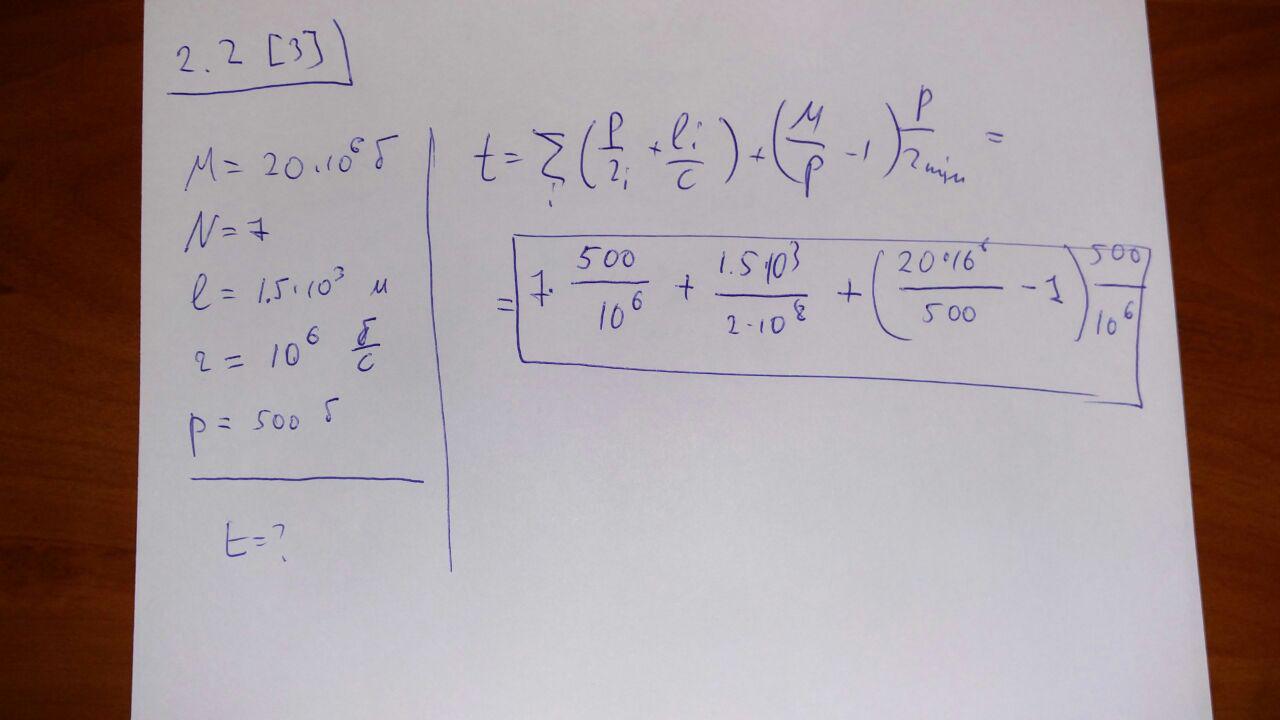 2.2 [3]
M = 20·10⁶ б
N = 7
l = 1.5·10³ м
r = 10⁶ б/с
p = 500 б
t = ?
t = Σᵢ (p/rᵢ + lᵢ/c) + (M/p - 1) p/r_min =
= 7· 500/10⁶ + 1.5·10³/2·10⁸ + (20·10⁶/500 - 1) 500/10⁶